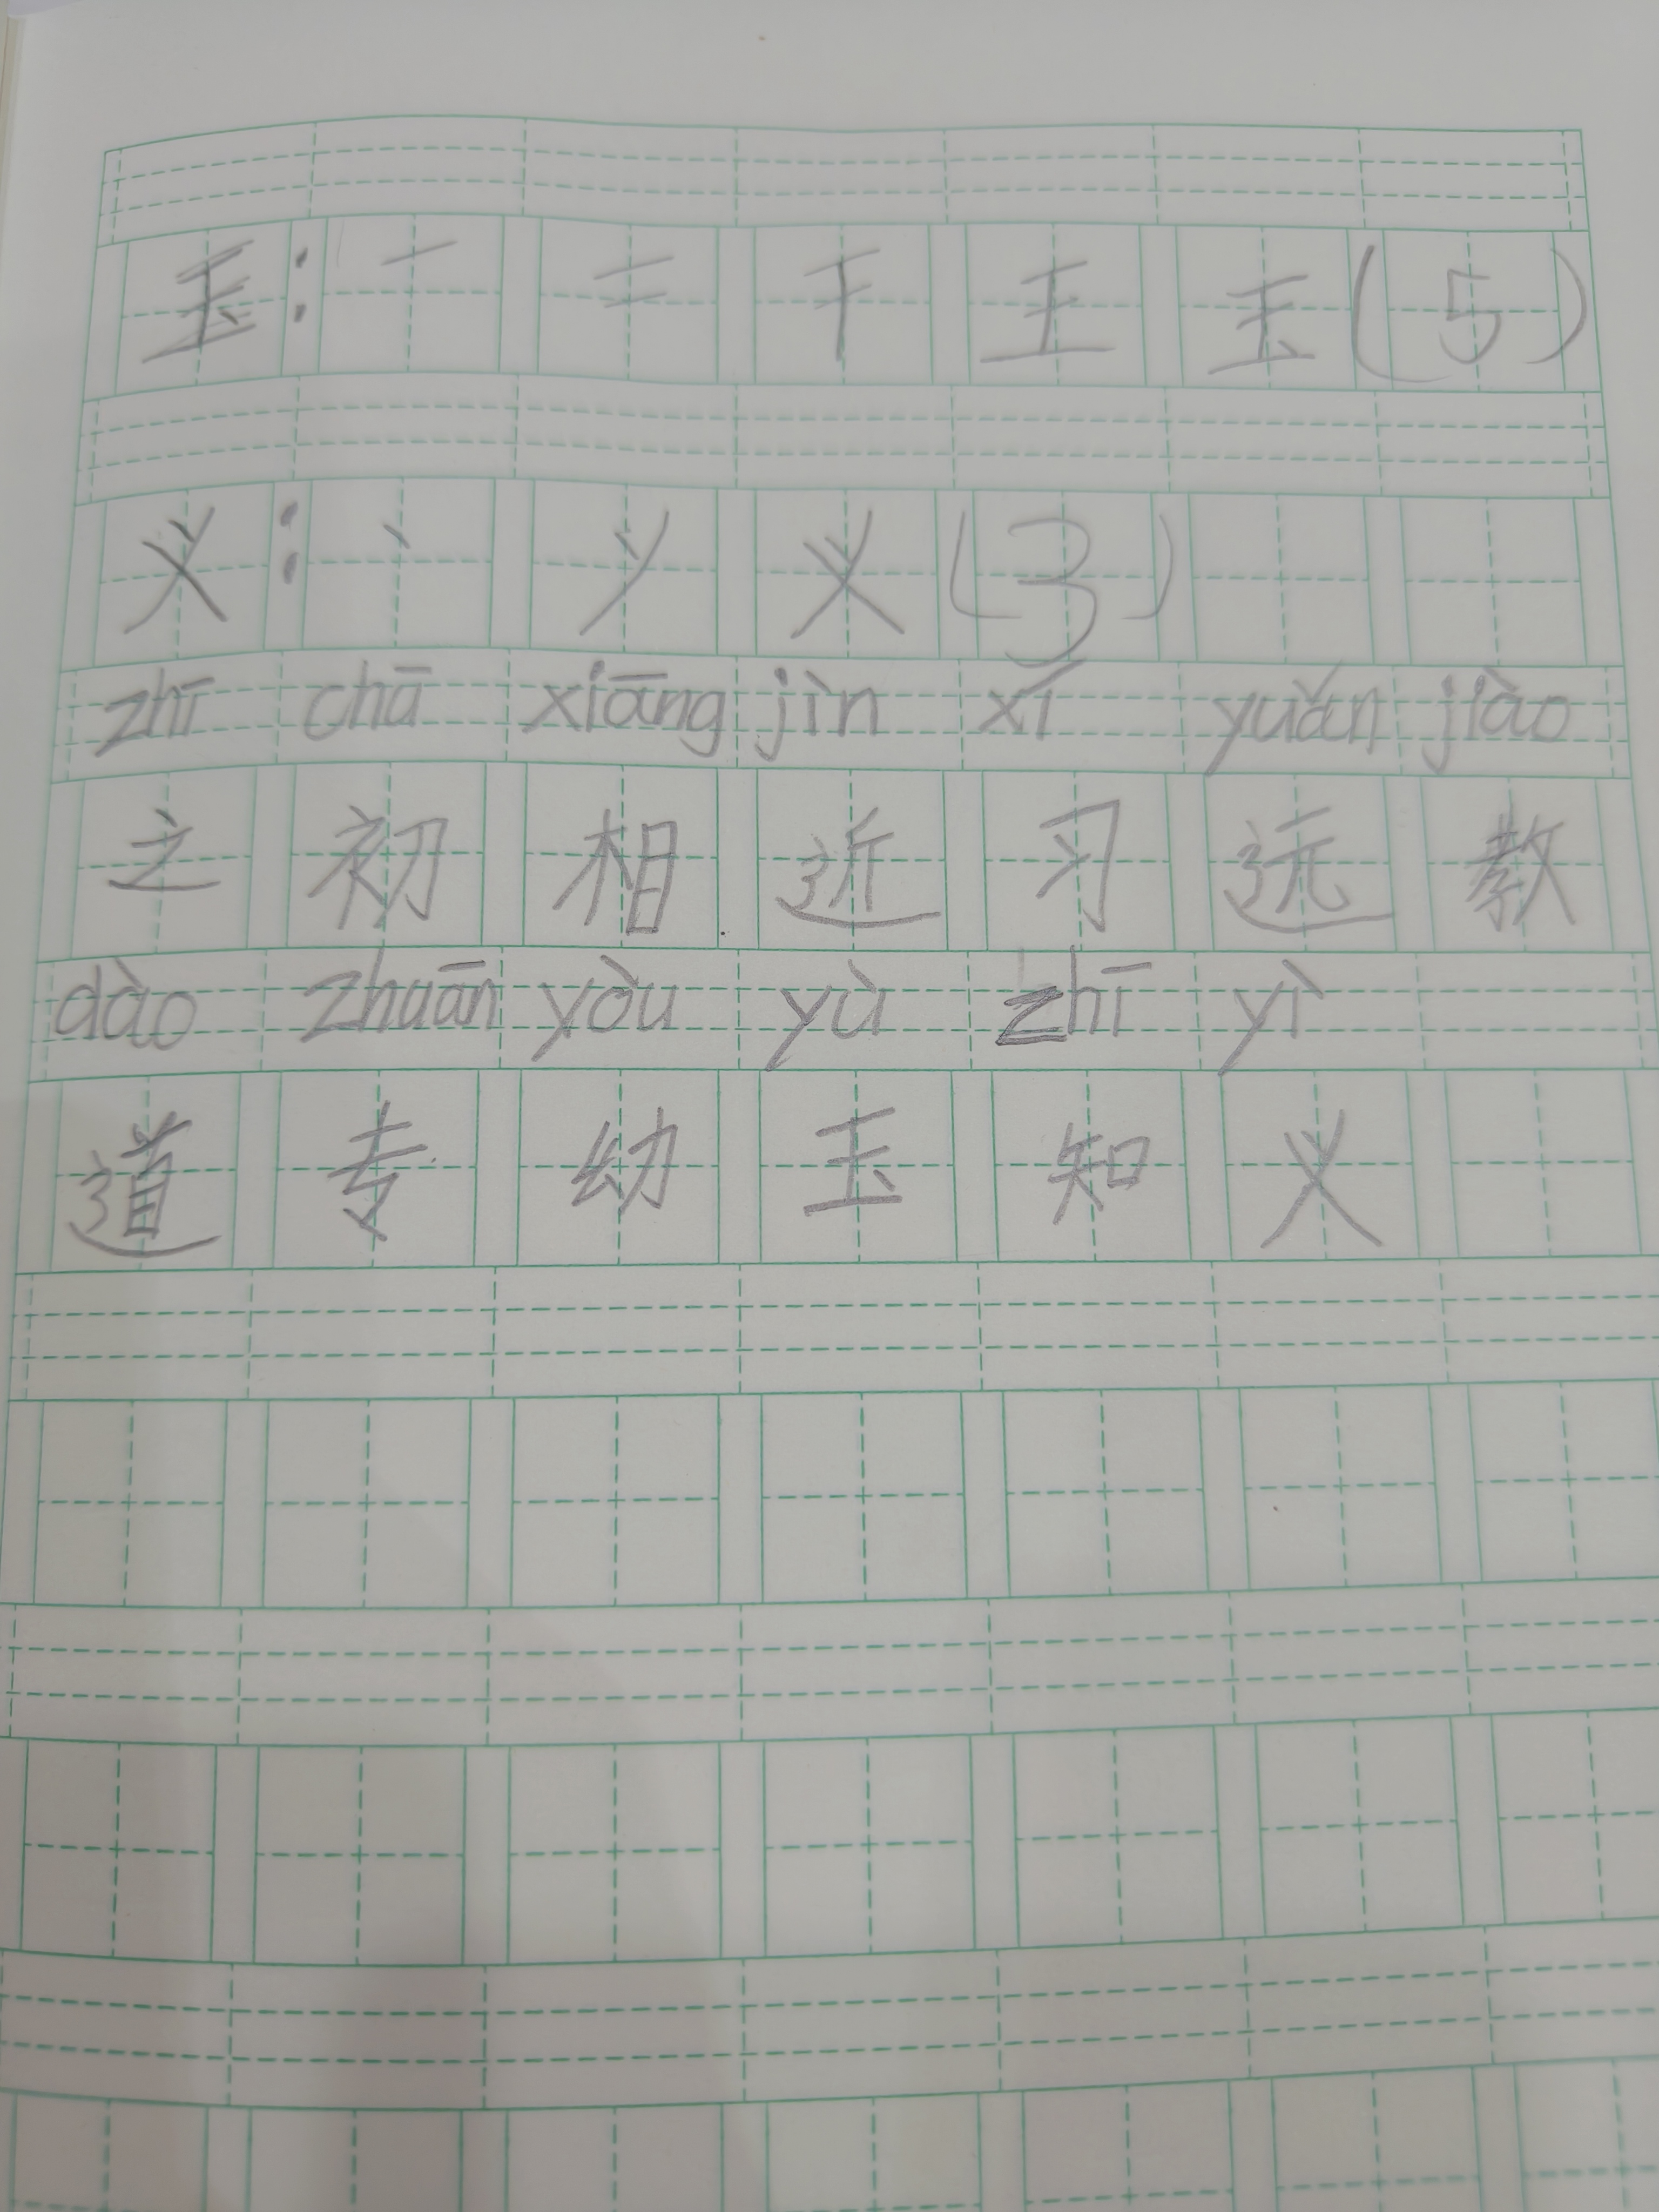 玉：一 二 干 王 玉（5）
义：丶 丷 义（3）
zhī chā xiāng jìn xí yuǎn jiào
之 初 相 近 习 远 教
dào zhuān yòu yù zhī yì
道 专 幼 玉 知 义